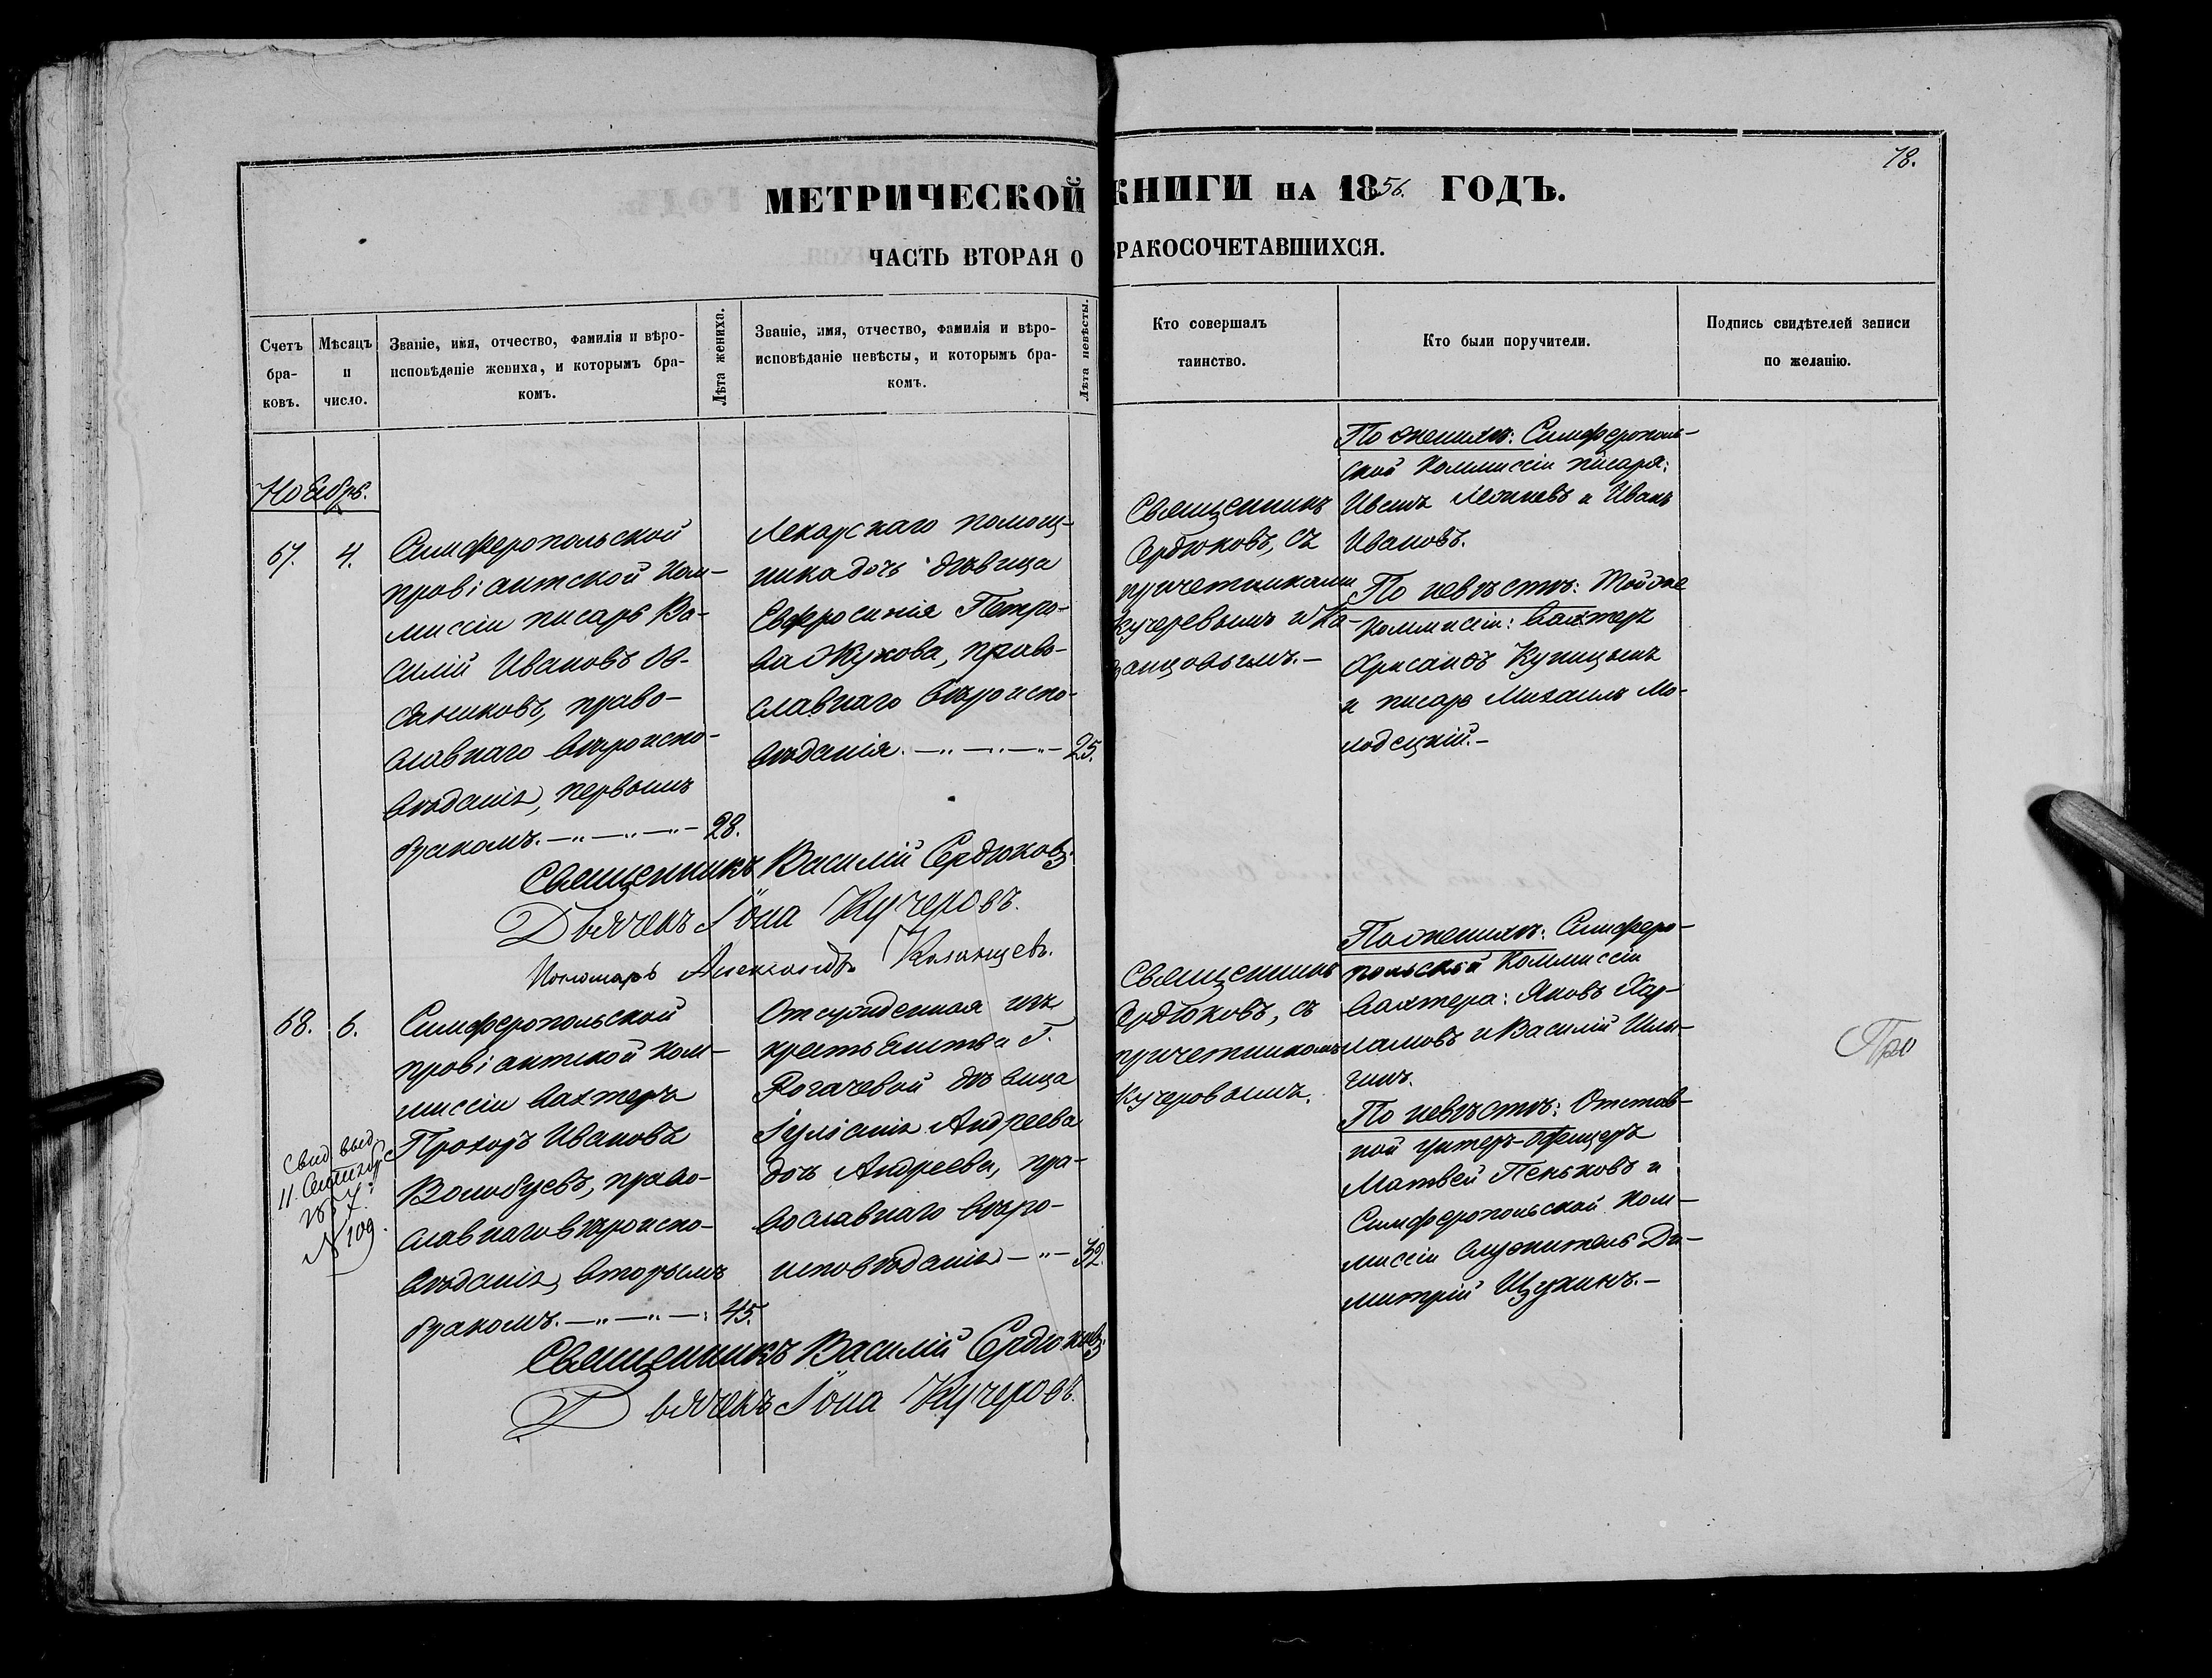 78.
МЕТРИЧЕСКОЙ КНИГИ НА 1856. ГОДЪ.
ЧАСТЬ ВТОРАЯ О БРАКОСОЧЕТАВШИХСЯ.
Счетъ бра- ковъ.
Мѣсяцъ и число.
Званіе, имя, отчество, фамилія и вѣро-
исповѣданіе жениха, и которымъ бра-
комъ.
Лѣта жениха.
Званіе, имя, отчество, фамилія и вѣро-
исповѣданіе невѣсты, и которымъ бра-
комъ.
Лѣта невѣсты.
Кто совершалъ
таинство.
Кто были поручители.
Подпись свидѣтелей записи
по желанію.
Ноябрь.
67. 4.
Симферопольской
провіантской Ком-
миссіи писарь Ва-
силій Ивановъ
православнаго вѣроиспо-
вѣданія, первымъ
бракомъ. 28.
Лекарскаго помощ-
ника дочь дѣвица
Евфросинія Петро-
ва Жукова, право-
славнаго вѣроиспо-
вѣданія. 25.
Священникъ
Сердюковъ, съ
причетниками
Кучеревымъ и Ка-
занцовымъ.
По женихѣ: Симферополь-
ской Коммиссіи писаря:
Иванъ и Иванъ
Ивановъ.
По невѣстѣ: Той же
Коммисіи: Вахтеръ
Хрисанфъ Купицынъ
и писарь Михаилъ Мо-
лодецкій.
Священникъ Василій Сердюковъ.
Дьячекъ Іона Кучеровъ.
Пономарь Александръ Казанцевъ.
68. 6.
Симферопольской
провіантской Ком-
миссіи Вахтеръ
Прохоръ Ивановъ
Волобуевъ, право-
славнаго вѣроиспо-
вѣданія, вторымъ
бракомъ. 45.
Свид. выд.
11. Сентября
№ 109.
Отсужденная изъ
крестьянства Г.
Рогачевой дѣвица
Іуліанія Андреева
дочь Андреева, пра-
вославнаго вѣро-
исповѣданія 32.
Священникъ
Сердюковъ, съ
причетникомъ
Кучеровымъ.
По женихѣ: Симферо-
польской Коммиссіи
Вахтера: Яковъ Хар-
ламовъ и Василій
По невѣстѣ: Отстав-
ной Унтеръ-Офицеръ
Матвей Пеньковъ и
Симферопольской Ком-
миссіи служитель Ди-
митрій Щукинъ.
Про
Священникъ Василій Сердюковъ.
Дьячекъ Іона Кучеровъ.